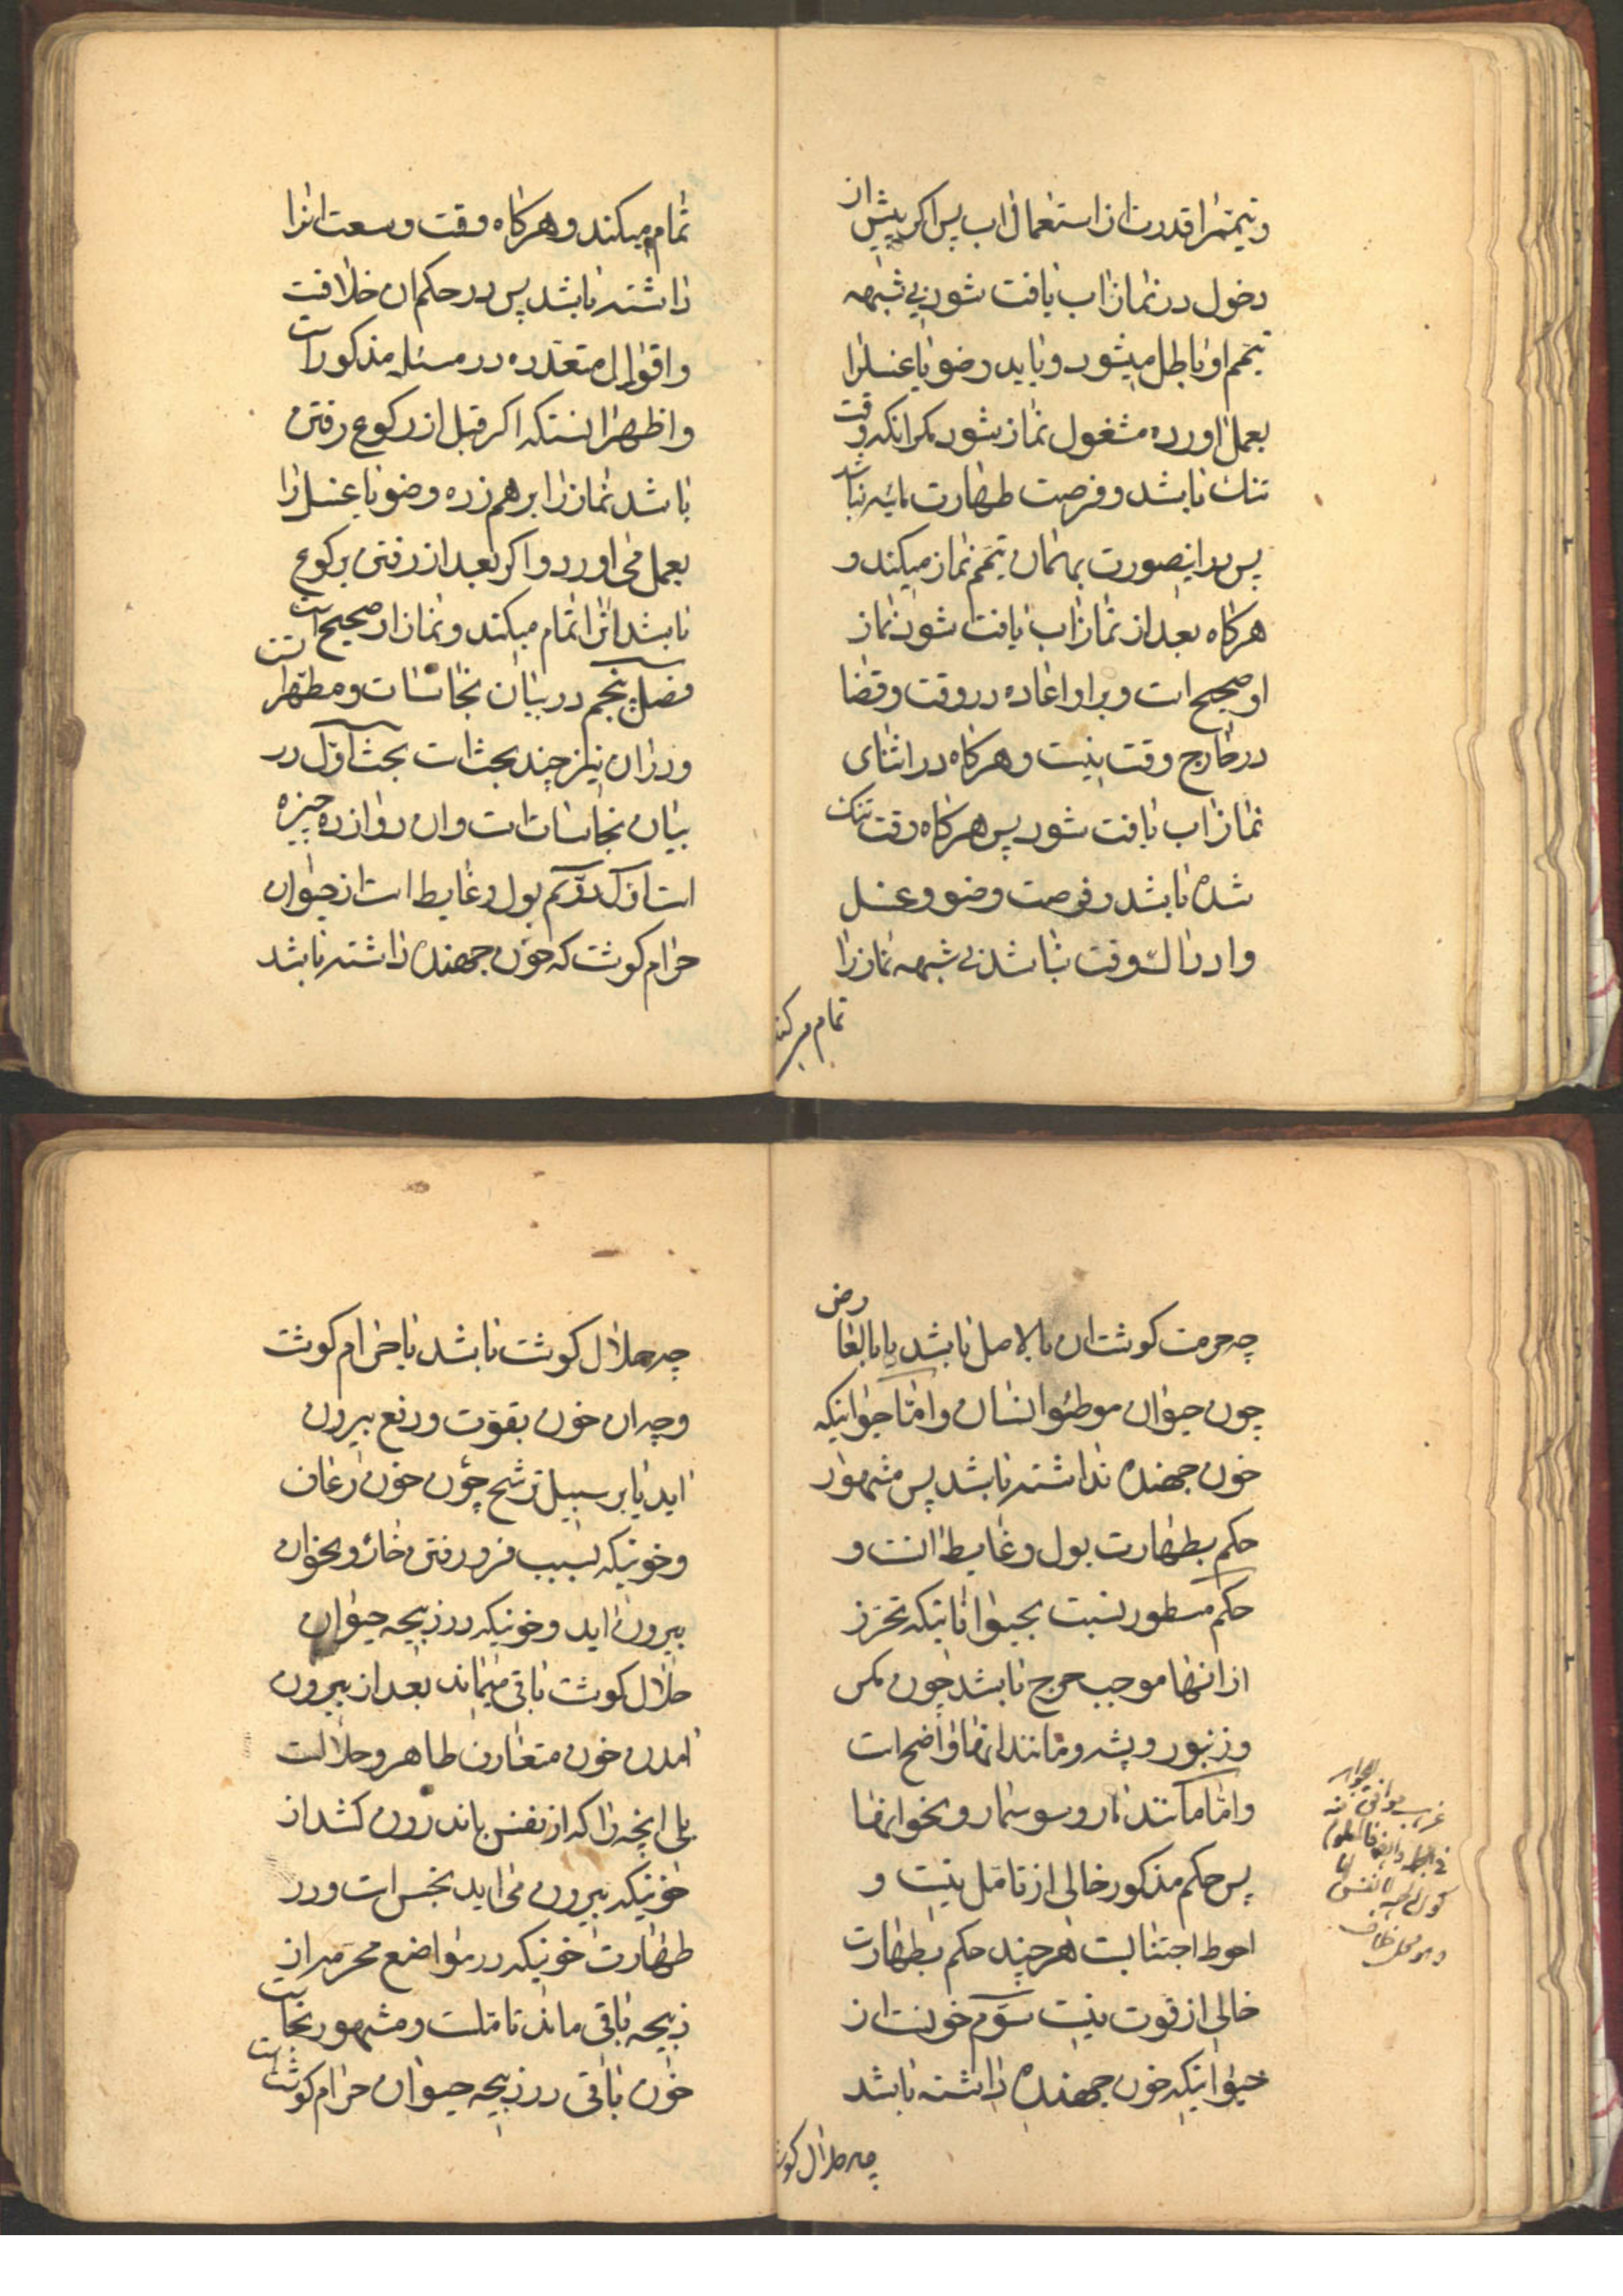 و تیمم را قدرت از استعمال اب پس اکر پیش از
دخول در نماز اب یافت شود بی شبهه
تیمم او باطل میشود و باید وضو یا غسل را
بعمل اورده مشغول نماز شود مکر انکه وقت
تنک باشد و فرصت طهارت مائیه نباشد
پس در اینصورت بهمان تیمم نماز میکند و
هرکاه بعد از نماز اب یافت شود نماز
او صحیح است و بر او اعاده در وقت و قضا
در خارج وقت نیست و هرکاه در اثنای
نماز اب یافت شود پس هرکاه وقت تنک
شده باشد و فرصت وضو و غسل
و ادراک وقت نباشد بی شبهه نماز را
تمام میکند
تمام میکند و هرکاه وقت وسعت انرا
داشته باشد پس در حکم ان خلافت
و اقوال متعدده در مسئله مذکور است
و اظهر انستکه اکر قبل از رکوع رفتن
باشد نماز را بر هم زده وضو یا غسل را
بعمل می اورد و اکر بعد از رفتن برکوع
باشد انرا تمام میکند و نماز او صحیح است
فصل پنجم در بیان نجاسات و مطهرات
و در ان نیز چند بحث است بحث اول در
بیان نجاسات است و ان دوازده چیزه
است اول و دویم بول و غایط است از حیوان
حرام کوشت که خون جهنده داشته باشد
چه حرمت کوشت ان بالاصل باشد یا بالعارض
چون حیوان موطوء انسان و اما حیوانیکه
خون جهنده نداشته باشد پس مشهور
حکم بطهارت بول و غایط انست و
حکم مسطور نسبت بحیواناتیکه تحرز
از انها موجب حرج باشد چون مکس
و زنبور و پشه و مانند انها واضح است
و اما مانند مار و سوسمار و نحو انها
پس حکم مذکور خالی از تامل نیست و
احوط اجتنابست هر چند حکم بطهارت
خالی از قوت نیست سوم خونست از
حیوانیکه خون جهنده داشته باشد
چه حلال کوشت
چه حلال کوشت باشد یا حرام کوشت
و چه ان خون بقوت و دفع بیرون
اید یا بر سبیل ترشح چون خون رعاف
و خونیکه بسبب فرو رفتن خار و نحو ان
بیرون اید و خونیکه در ذبیحه حیوان
حلال کوشت باقی میماند بعد از بیرون
امدن خون متعارف طاهر و حلالست
بلی انچه را که از نفس باندرون کشد از
خونیکه بیرون می اید نجس است و در
طهارت خونیکه در مواضع محرمه از
ذبیحه باقی ماند تاملست و مشهور نجاست
خون باقی در ذبیحه حیوان حرام کوشت است